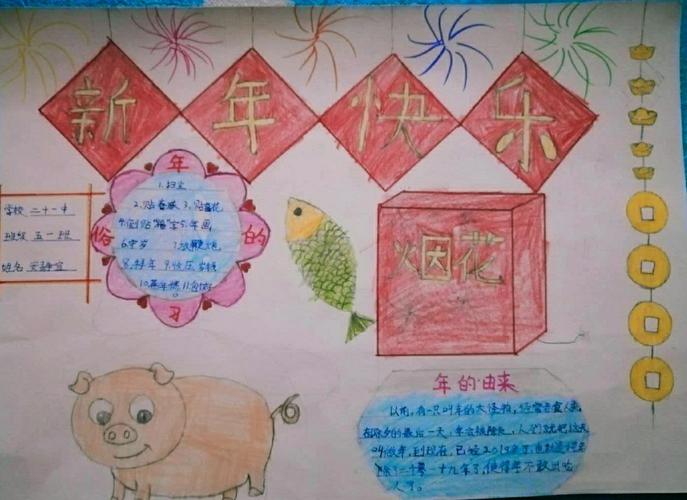 新年快乐
学校 二十一中
班级 五一班
姓名
年
的
习
俗
1.扫尘
2.贴春联 3.贴窗花
4.倒贴"福"字 5.年画
6.守岁 7.放鞭炮
8.拜年 9.收压岁钱
10.蒸年糕 11.包
烟花
年的由来
以前,有一只叫年的大怪物,经常
在除夕的最后一天,年会被,人们就把这天
叫做年,到现在,已经2019年了,也就是说是
零一十九年了,使得年不敢出
人了。